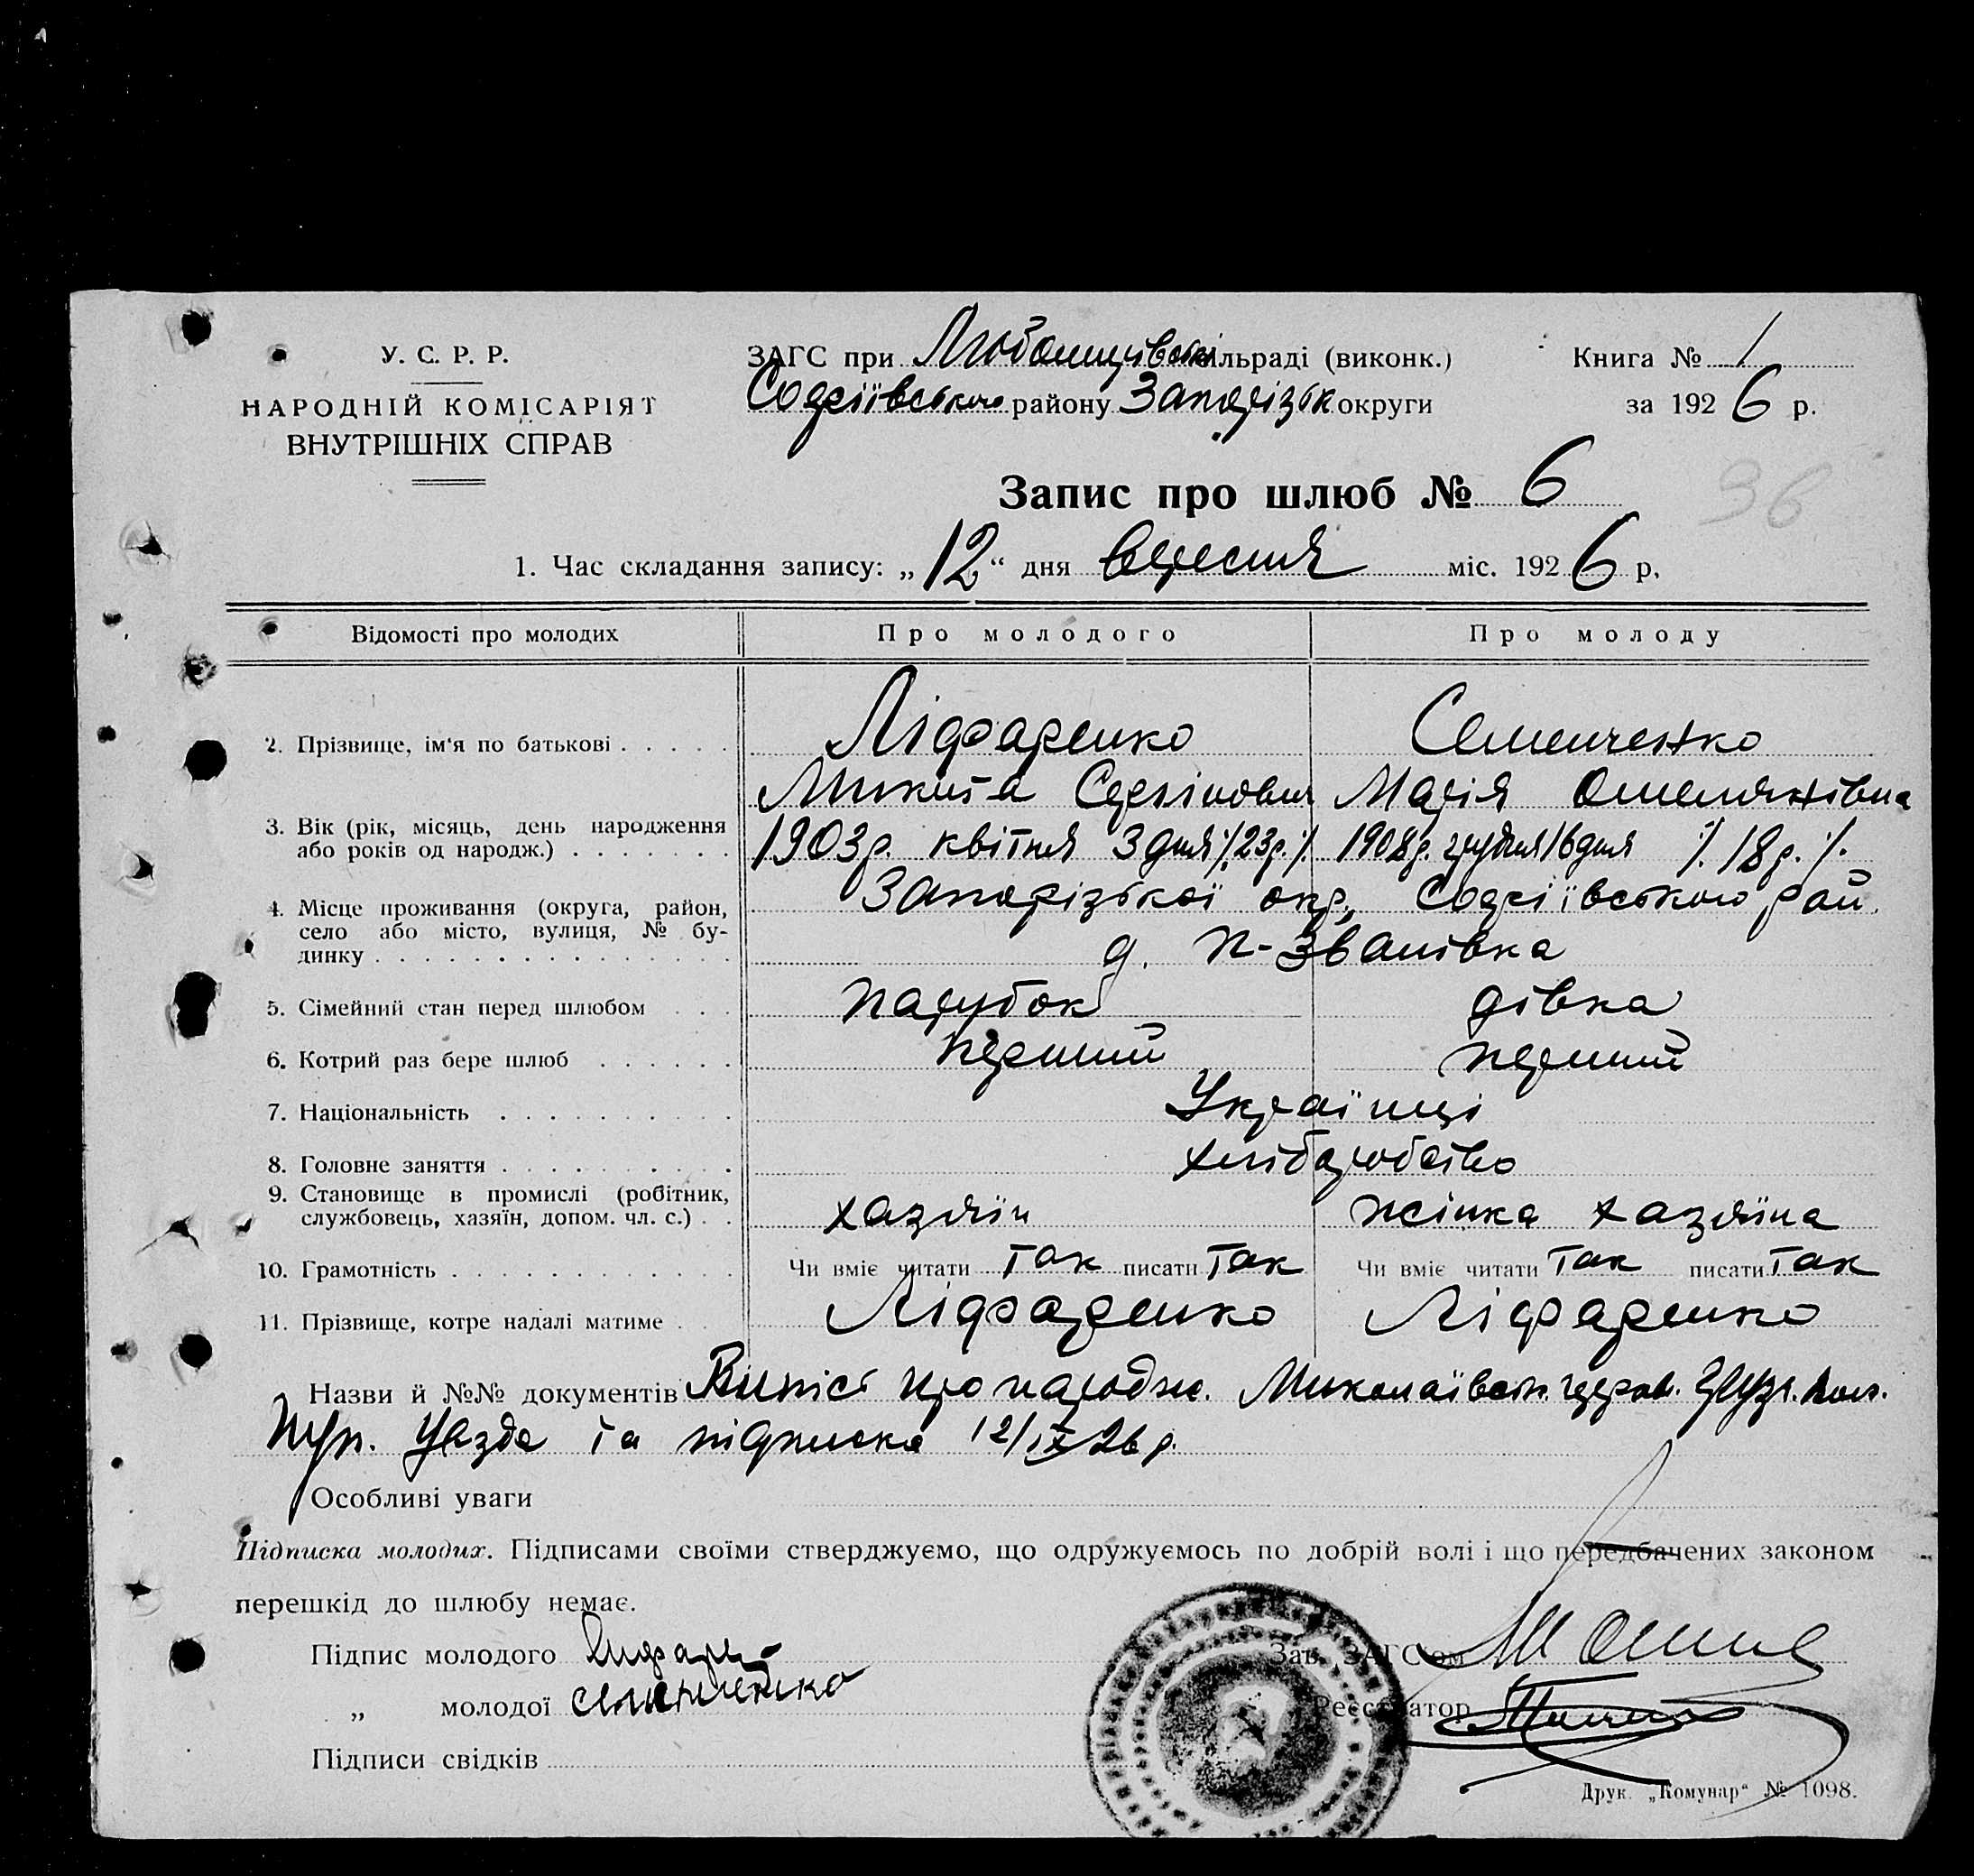 У. С. Р. Р.
НАРОДНІЙ КОМІСАРІЯТ
ВНУТРІШНІХ СПРАВ
ЗАГС при сільраді (виконк.)
району Запорізьк округи
Книга № 1
за 1926 р.
Запис про шлюб № 6
36
1. Час складання запису: „12“ дня вересня міс. 1926 р.
Відомості про молодих Про молодого Про молоду
2. Прізвище, ім'я по батькові Ліфаренко Семенченко
Микита Сергійович Марія Омелянівна
3. Вік (рік, місяць, день народження 1903р. квітня 3 дня ./.23р./. 1908р. грудня 16 дня ./. 18 р. /.
або років од народж.)
4. Місце проживання (округа, район, Запорізької окр., Софіївського рай.
село або місто, вулиця, № бу-
динку д. П-Званівка
5. Сімейний стан перед шлюбом парубок дівка
6. Котрий раз бере шлюб перший перший
7. Національність Українці
8. Головне заняття хліборобство
9. Становище в промислі (робітник,
службовець, хазяїн, допом. чл. с.) хазяїн жінка хазяїна
10. Грамотність Чи вміє читати так писати так Чи вміє читати так писати так
11. Прізвище, котре надалі матиме Ліфаренко Ліфаренко
Назви й №№ документів Випісі про народж. Миколаївськ.
та підписка 12/IX 26 р.
Особливі уваги
Підписка молодих. Підписами своїми стверджуємо, що одружуємось по добрій волі і що передбачених законом
перешкід до шлюбу немає.
Підпис молодого
„ молодої
Підписи свідків
Зав. ЗАГС'ом
Реєстратор
Друк. „Комунар“ № 1098.